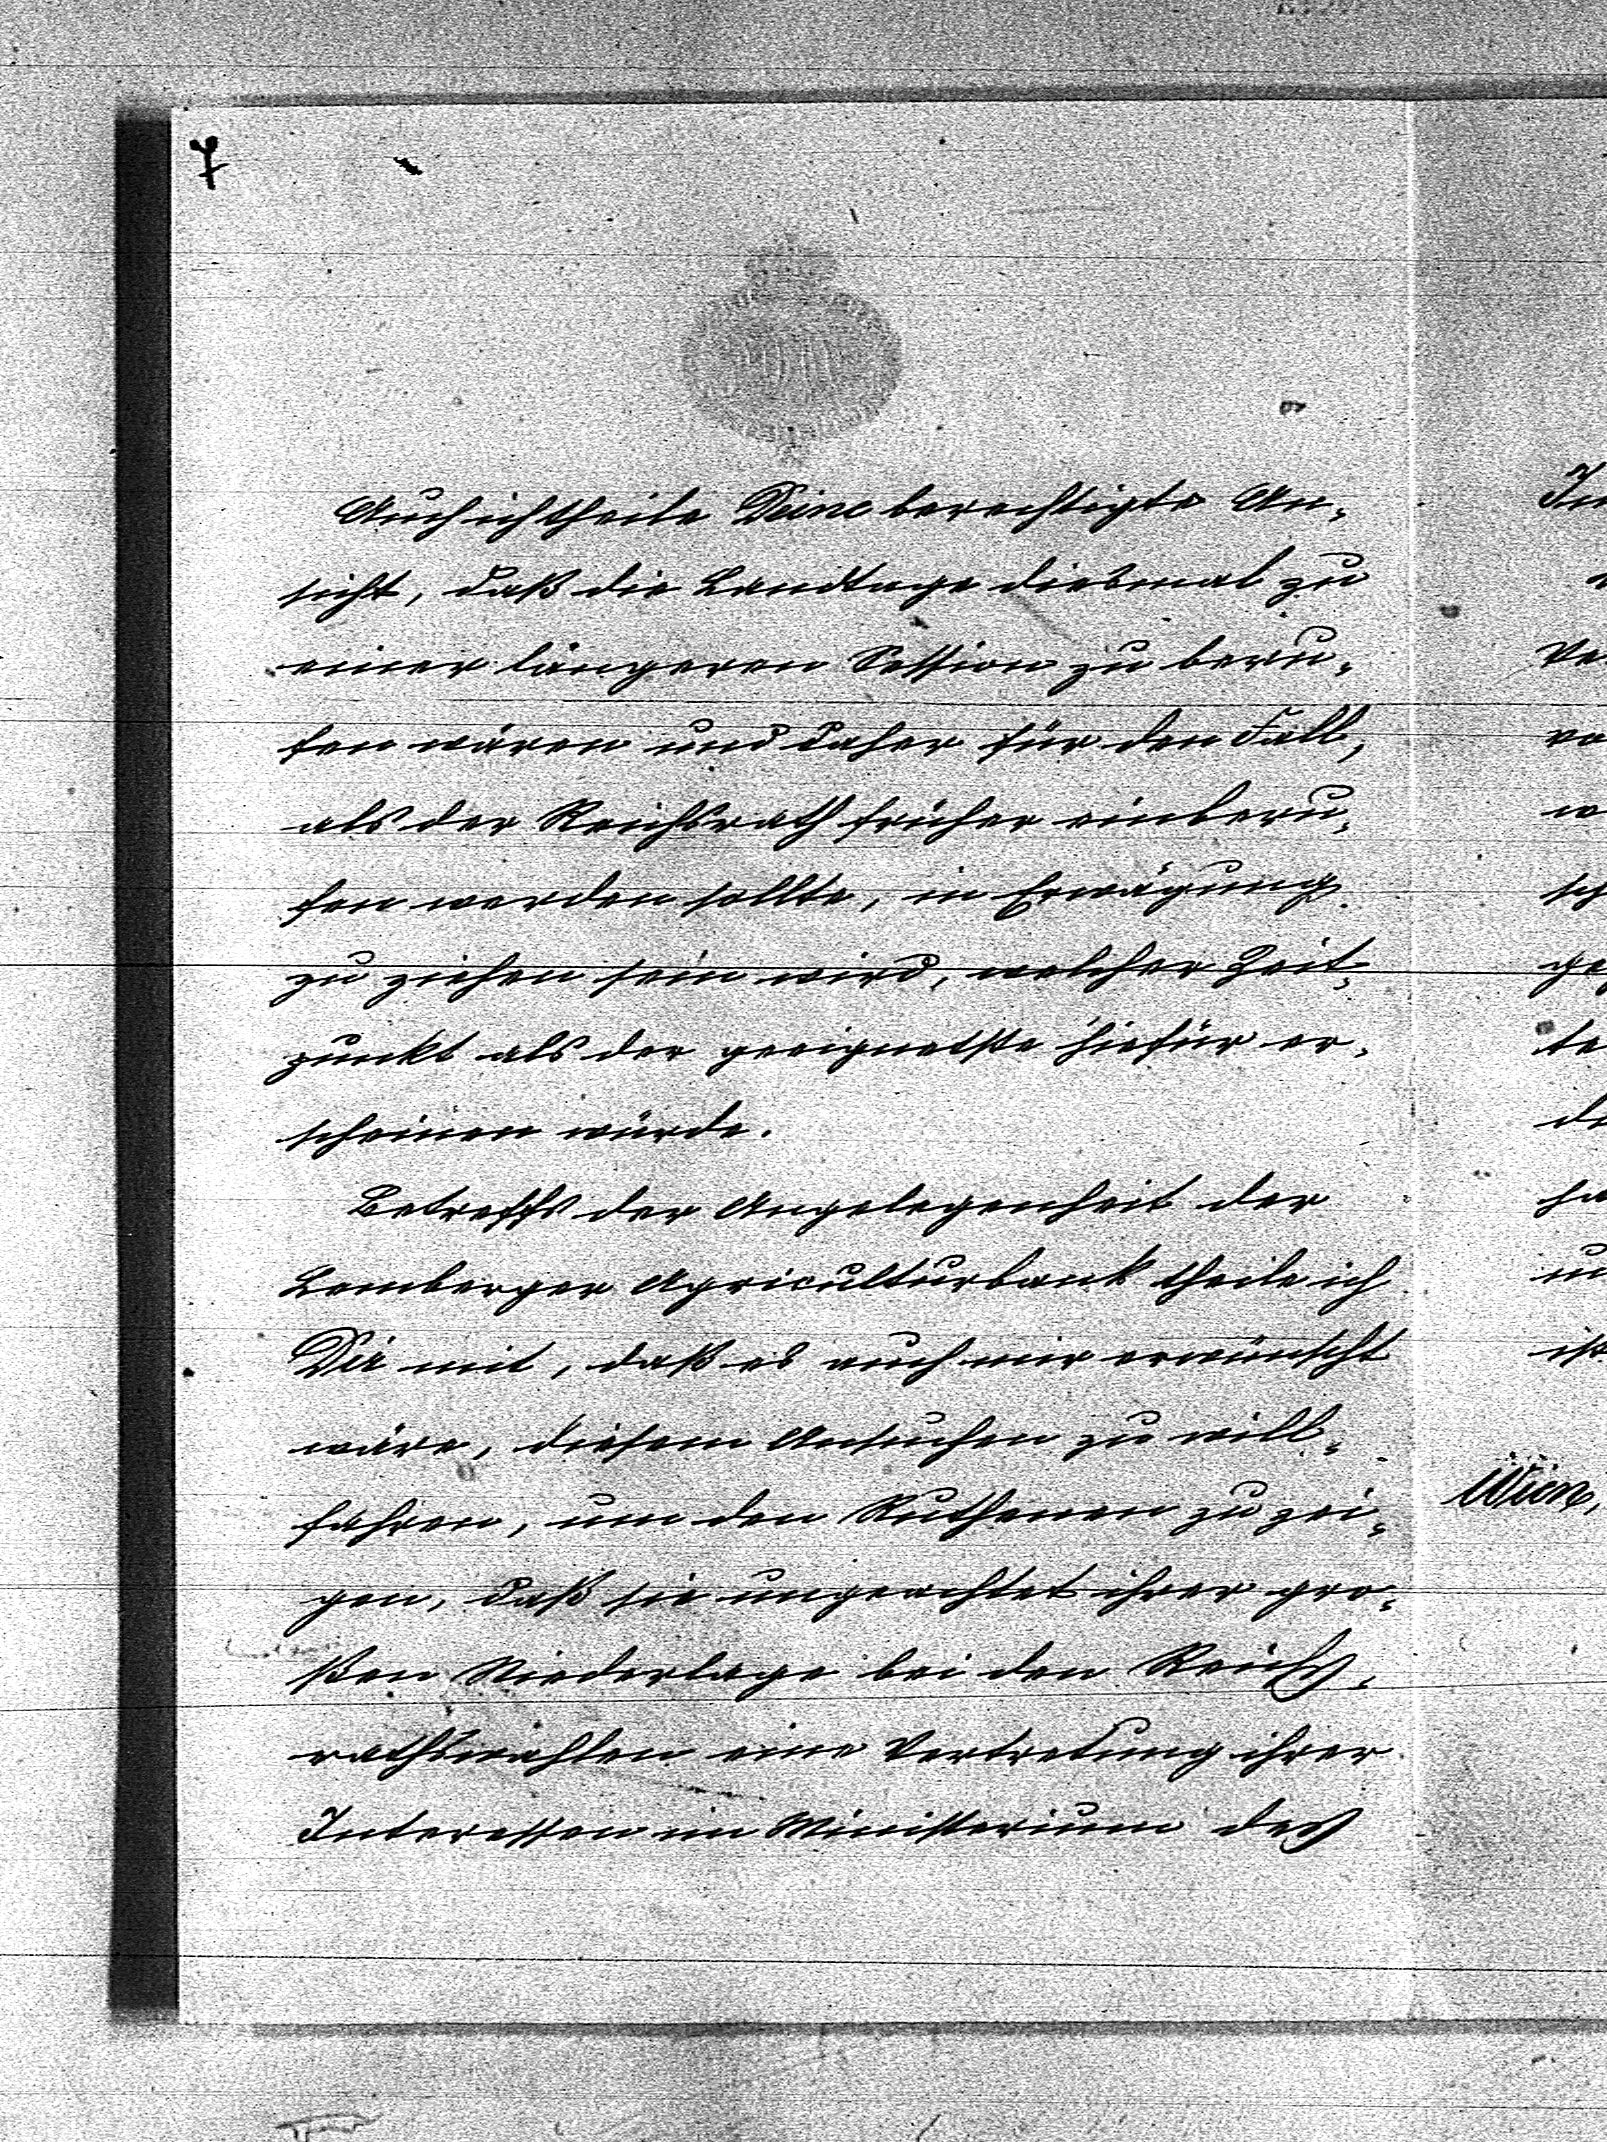 7
Auch ich theile Deine berechtigte An-
sicht, daß die Landtage diesmal zu
einer längeren Session zu beru-
fen wären und daher für den Fall,
als der Reichsrath früher einberu-
fen werden sollte, in Erwägung
zu ziehen sein wird, welcher Zeit-
punkt als der geeignetste hiefür er-
scheinen würde.
Betreffs der Angelegenheit der
Lemberger Agriculturbank theile ich
Dir mit, daß es auch mir erwünscht
wäre, diesem Ansuchen zu will-
fahren, um den Ruthenen zu zei-
gen, daß sie ungeachtet ihrer gro-
ßen Niederlage bei den Reichs-
rathswahlen eine Vertretung ihrer
Interessen im Ministerium des
Wien,